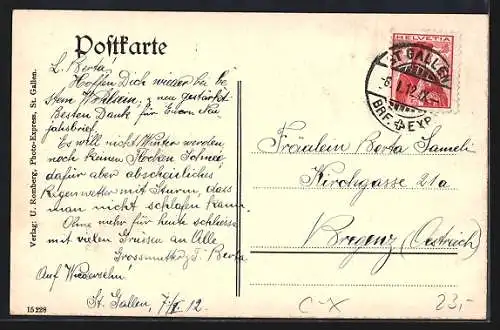 Postkarte
L. Berta!
Hoffen Dich wieder bei be
stem Wohlsein, & neu gestärkt.
Besten Dank für Euern Neu
jahrsbrief.
Es will nicht Winter werden
noch keinen Flocken Schnee,
dafür aber abscheuliches
Regenwetter mit Sturm, dass
man nicht schlafen kann.
Ohne mehr für heute schliesse
mit vielen Grüssen an Alle
Grossmutter & Berta
Auf Wiedersehn!
St. Gallen, 7/I. 12.
Verlag: U. Romberg, Photo-Express, St. Gallen.
15228
HELVETIA
ST. GALLEN
BRF. EXP.
Fräulein Berta
Kirchgasse 21a
Bregenz (Oestreich)
C-X
23,-